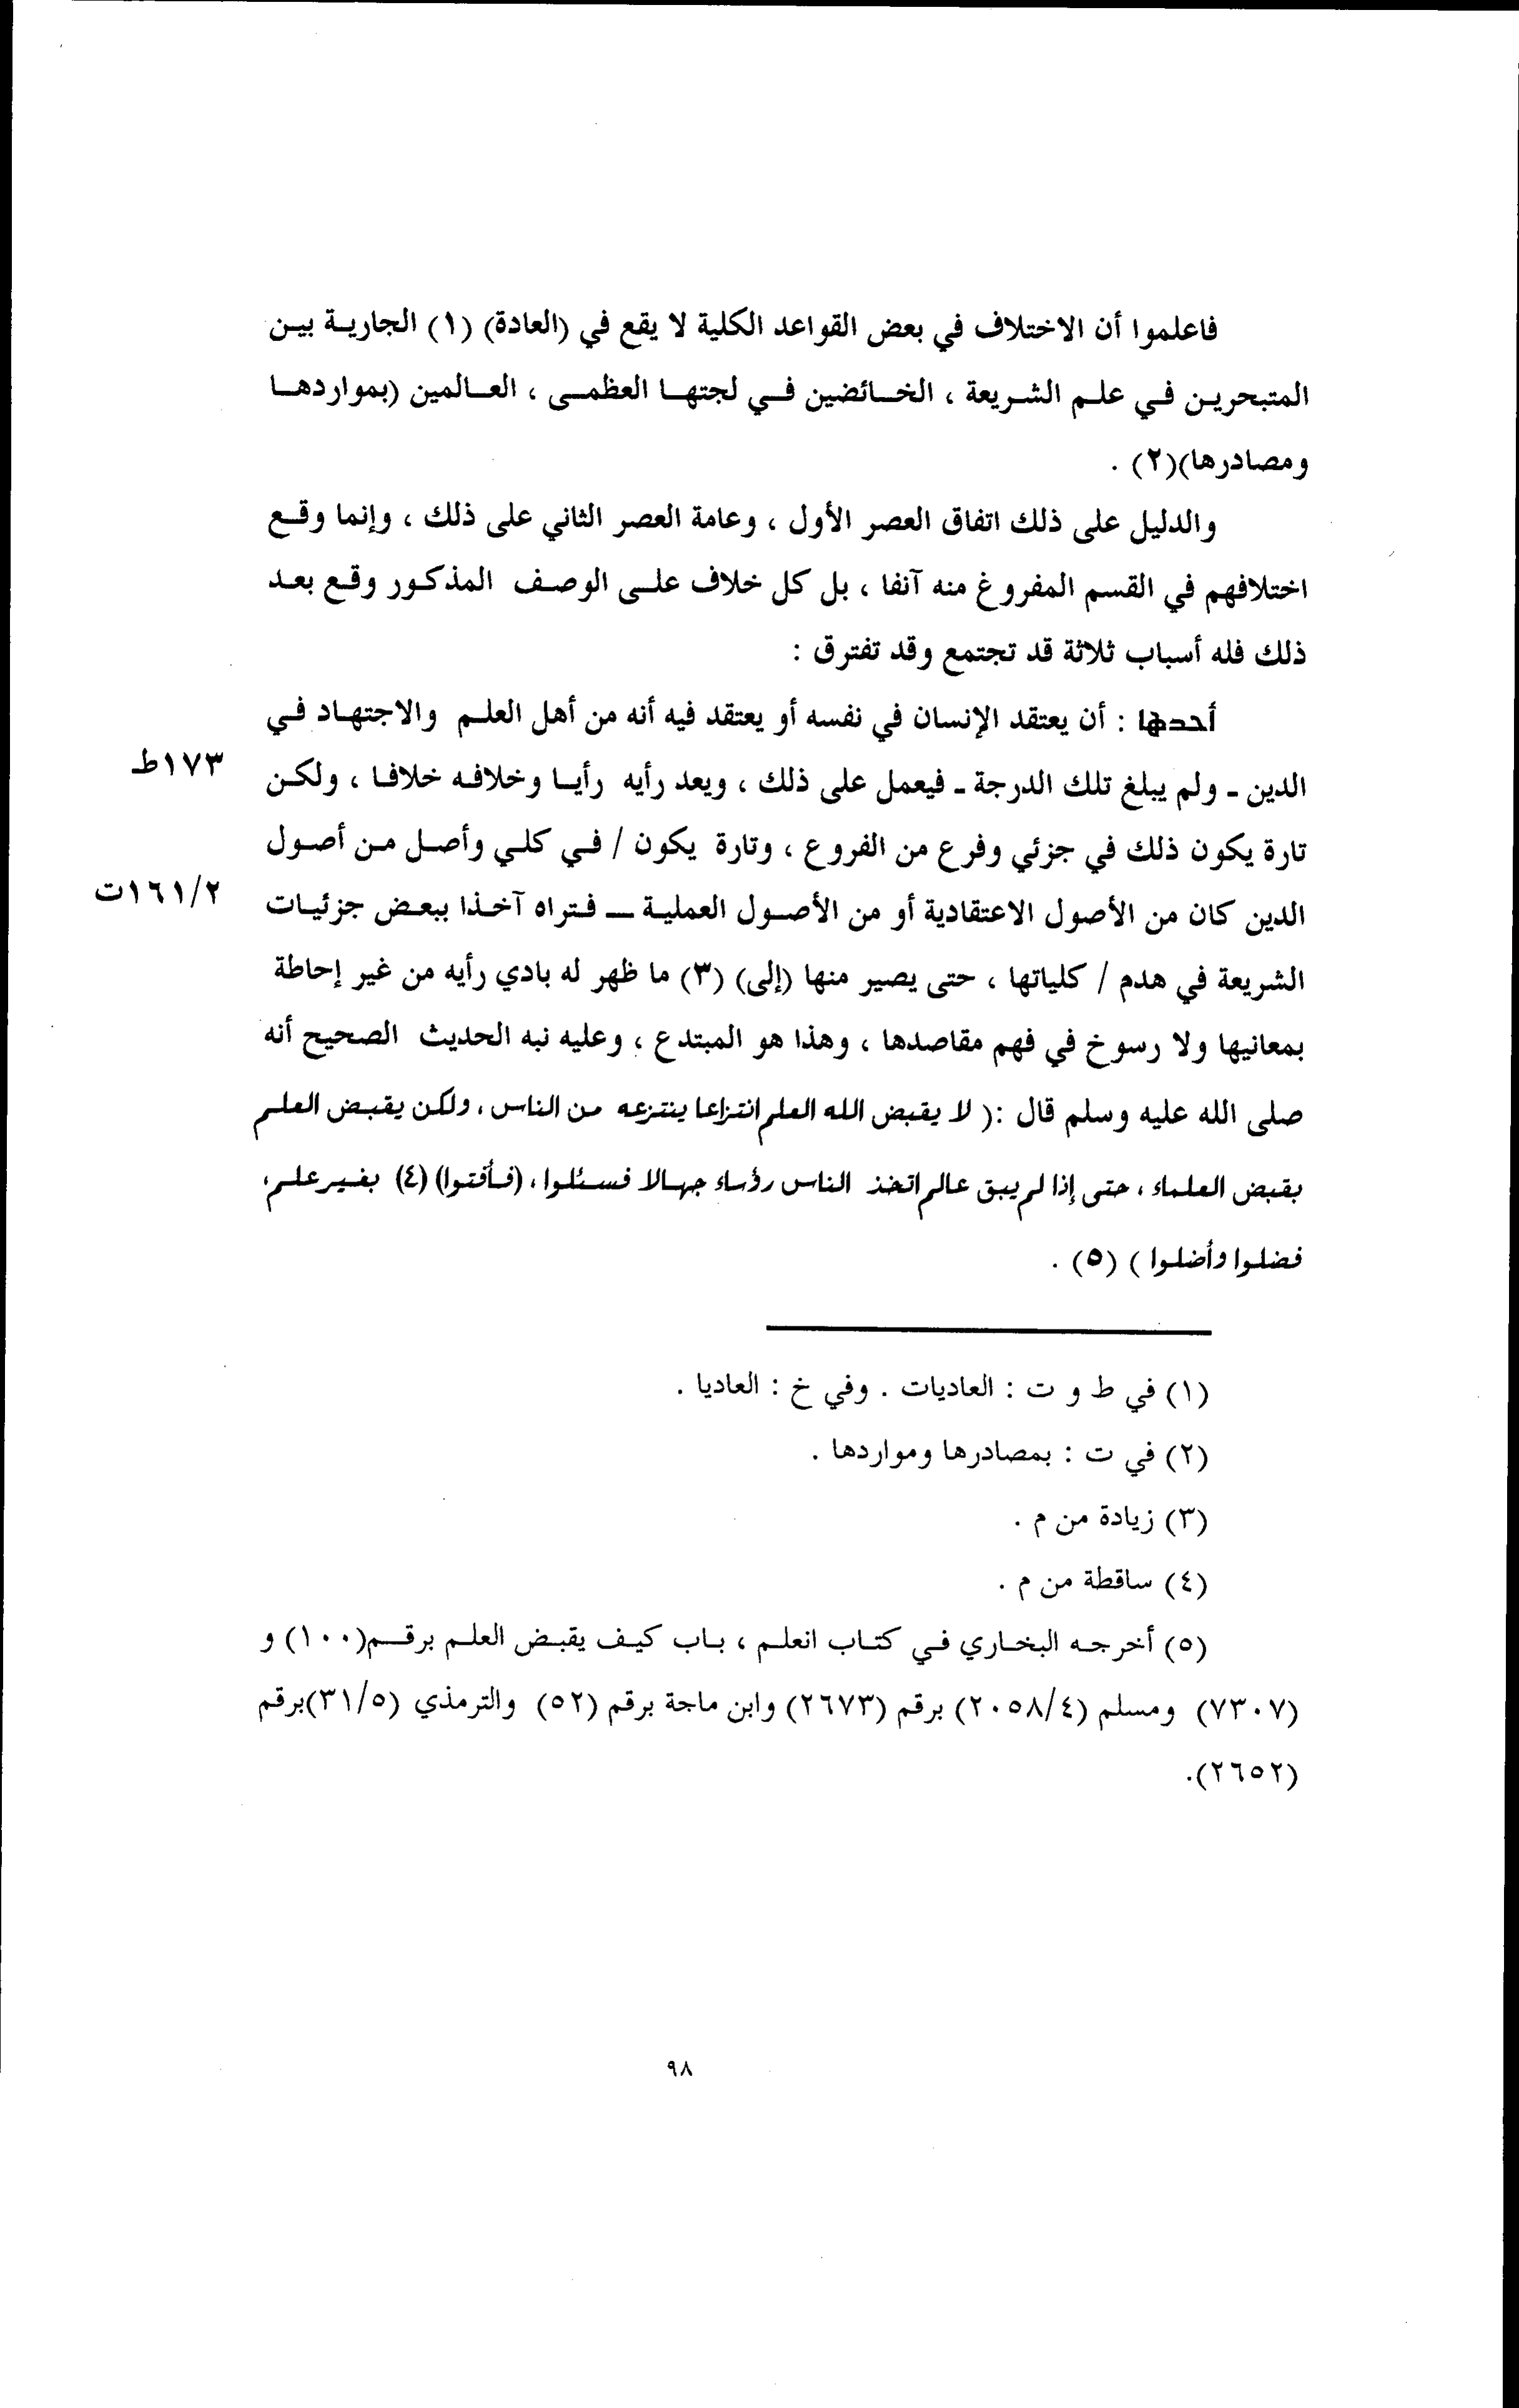 فاعلموا أن الاختلاف في بعض القواعد الكلية لا يقع في (العادة) (١) الجارية بين
المتبحرين في علم الشريعة ، الخائضين في لجتها العظمى ، العالمين (بمواردها
ومصادرها)(٢) .
والدليل على ذلك اتفاق العصر الأول ، وعامة العصر الثاني على ذلك ، وإنما وقع
اختلافهم في القسم المفروغ منه آنفا ، بل كل خلاف على الوصف المذكور وقع بعد
ذلك فله أسباب ثلاثة قد تجتمع وقد تفترق :
أحدها : أن يعتقد الإنسان في نفسه أو يعتقد فيه أنه من أهل العلم والاجتهاد في
١٧٣ط
الدين - ولم يبلغ تلك الدرجة - فيعمل على ذلك ، ويعد رأيه رأيا وخلافه خلافا ، ولكن
تارة يكون ذلك في جزئي وفرع من الفروع ، وتارة يكون / في كلي وأصل من أصول
١٦١/٢ت
الدين كان من الأصول الاعتقادية أو من الأصول العملية ـ فتراه آخذا ببعض جزئيات
الشريعة في هدم / كلياتها ، حتى يصير منها (إلى) (٣) ما ظهر له بادي رأيه من غير إحاطة
بمعانيها ولا رسوخ في فهم مقاصدها ، وهذا هو المبتدع ، وعليه نبه الحديث الصحيح أنه
صلى الله عليه وسلم قال :( لا يقبض الله العلم انتزاعا ينتزعه من الناس ، ولكن يقبض العلم
بقبض العلماء ، حتى إذا لم يبق عالم اتخذ الناس رؤساء جهالا فسئلوا ، (فأفتوا) (٤) بغير علم ،
فضلوا وأضلوا ) (٥) .
(١) في ط و ت : العاديات . وفي خ : العاديا .
(٢) في ت : بمصادرها ومواردها .
(٣) زيادة من م .
(٤) ساقطة من م .
(٥) أخرجه البخاري في كتاب انعلم ، باب كيف يقبض العلم برقم(١٠٠) و
(٧٣٠٧) ومسلم (٢٠٥٨/٤) برقم (٢٦٧٣) وابن ماجة برقم (٥٢) والترمذي (٣١/٥)برقم
(٢٦٥٢).
٩٨